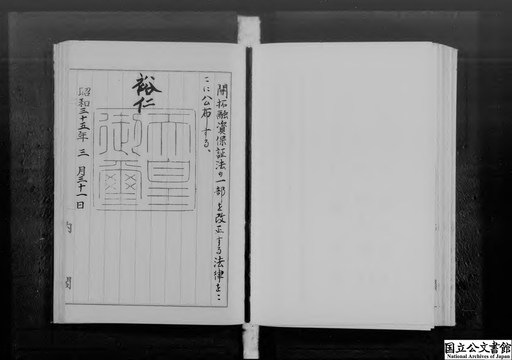 開拓融資保証法の一部を改正する法律をこ
こに公布する。
裕仁
天皇
御璽
昭和三十五年三月三十一日
内閣
国立公文書館
National Archives of Japan